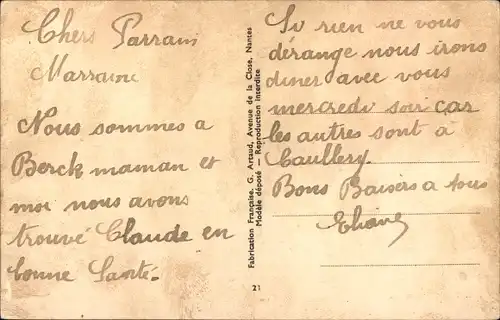 Chers Parrain
Marraine
Nous sommes a
Berck maman et
moi nous avons
trouvé Claude en
bonne Santé.
Fabrication Française. G. Artaud, Avenue de la Close, Nantes
Modèle déposé — Reproduction interdite
21
Si rien ne vous
dérange nous irons
diner avec vous
mercredi soir car
les autres sont à
Caullery.
Bons Baisers a tous